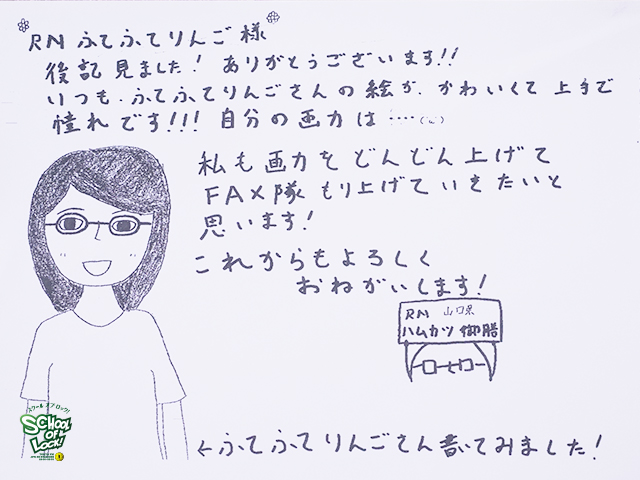 RN ふてふてりんご 様
後記 見ました! ありがとうございます!!
いつも・ふてふてりんごさんの絵が かわいくて 上手で
憧れです!!! 自分の画力は ……
私も画力を どんどん上げて
FAX隊 もり上げて いきたいと
思います!
これからもよろしく
おねがいします!
RN 山口県
ハムカツ 御膳
スクール オブ ロック!
SCHOOL OF LOCK!
←ふてふて りんごさん 書いてみました!